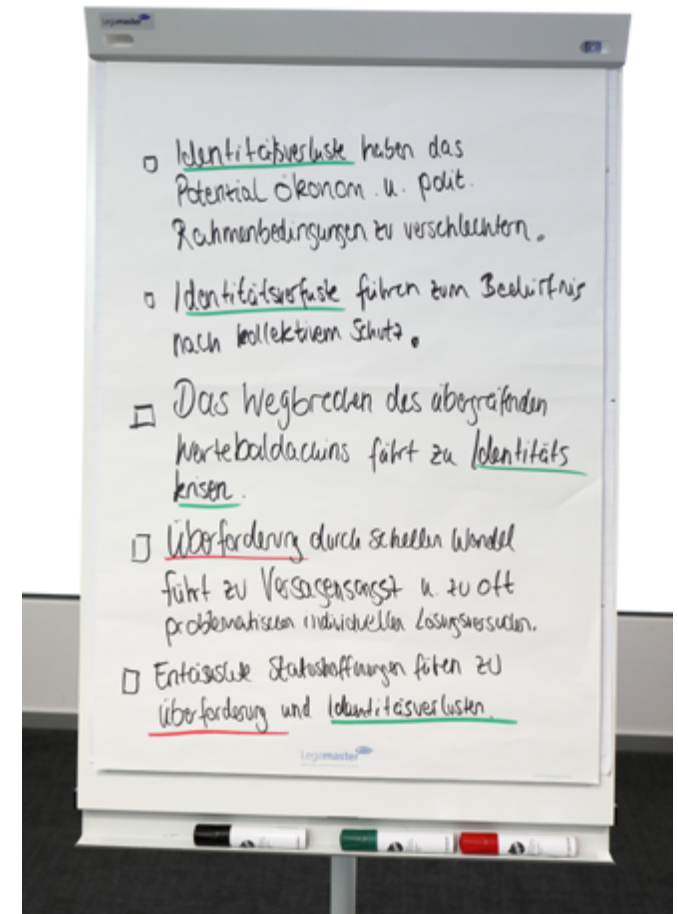 Legamaster
Identitätsverluste haben das
Potenzial ökonom. u. polit.
Rahmenbedingungen zu verschlechtern.
Identitätsverluste führen zum Bedürfnis
nach kollektivem Schutz.
Das Wegbrechen des übergreifenden
Wertebaldachins führt zu Identitäts
krisen.
Überforderung durch schellen Wandel
führt zu Versagensangst u. zu oft
problematischen individuellen Lösungsversuchen.
Entäuschte Statushoffnungen füren zu
Überforderung und Identitäsverlusten.
Legamaster